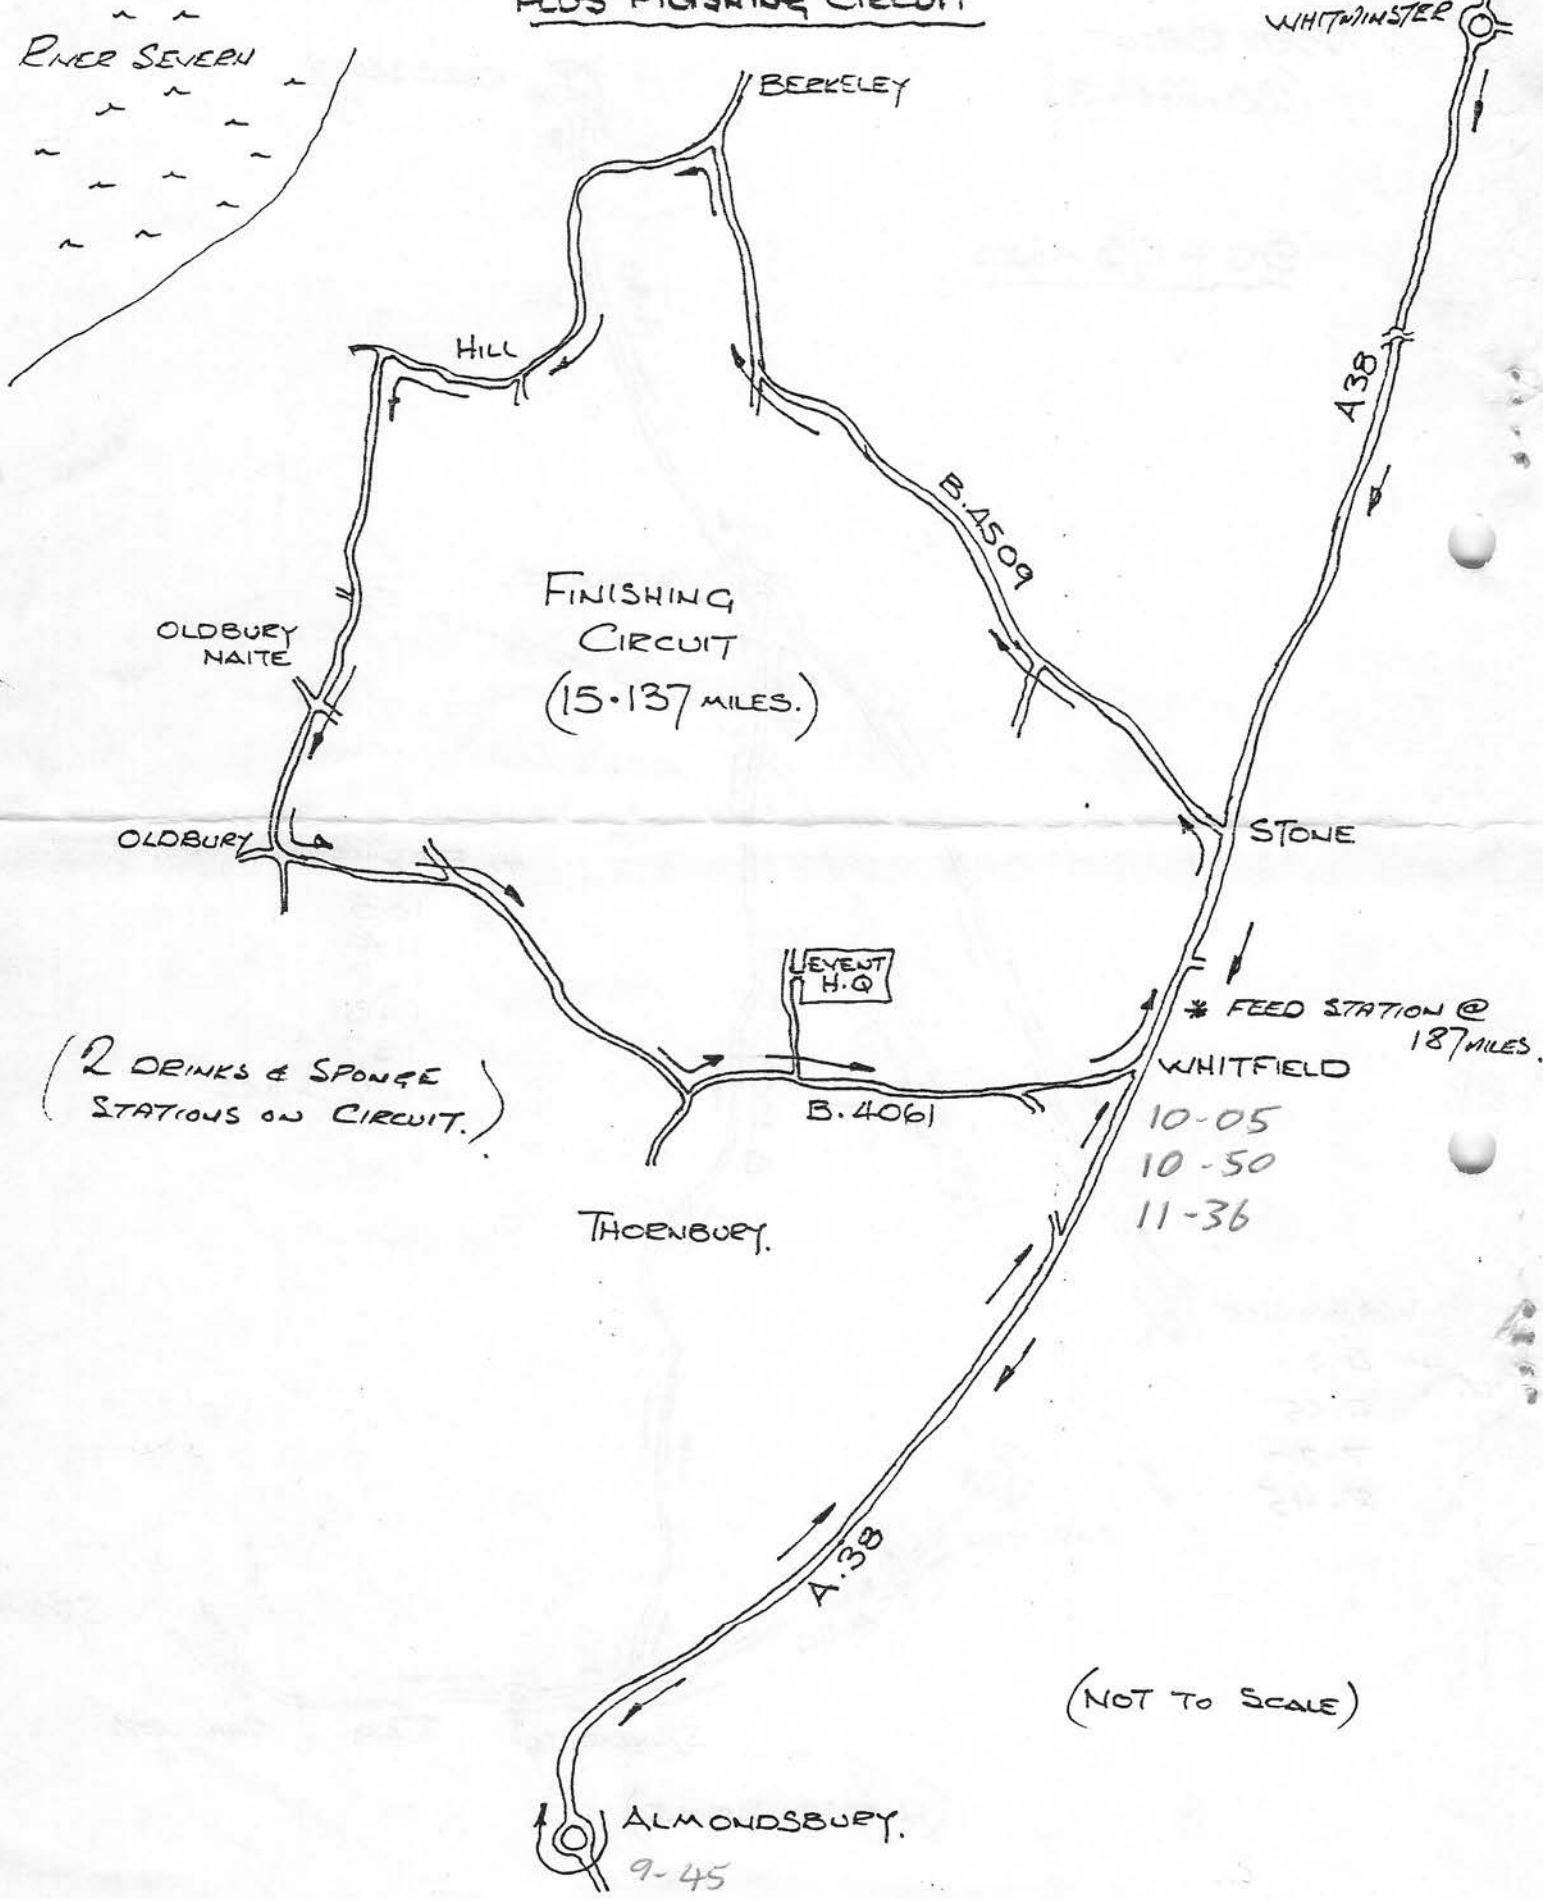 PLUS FINISHING CIRCUIT
WHITMINSTER
RIVER SEVERN
BERKELEY
HILL
A38
B.4509
FINISHING
CIRCUIT
(15.137 MILES.)
OLDBURY
NAITE
OLDBURY
STONE
EVENT
H.Q
* FEED STATION @
187 MILES.
(2 DRINKS & SPONGE
STATIONS ON CIRCUIT.)
WHITFIELD
B.4061
10-05
10-50
11-36
THORNBURY.
A.38
(NOT TO SCALE)
ALMONDSBURY.
9-45